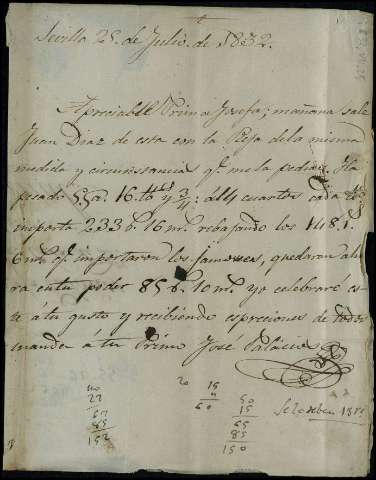 Sevilla 25 de Julio de 1832.
Apreciable Prima Josefa; mañana sale
Juan Diaz de esta con la Pieza de la misma
medida y circunstancias qe. me la pediais. Ha
pesado 55 a. 16 tts y 3/4: á 114 cuartos cada
importa 233 r. 16 m. rebajando los 148 r.
6 m. qe. importaron los jamones, quedaran aho
ra en tu poder 85 r. 10 m. yo celebraré es
te á tu gusto y recibiendo espreciones de todos
manda á tu Primo José Palacios
20 15
22 4 50
67 60 15
85 65
152 85
150